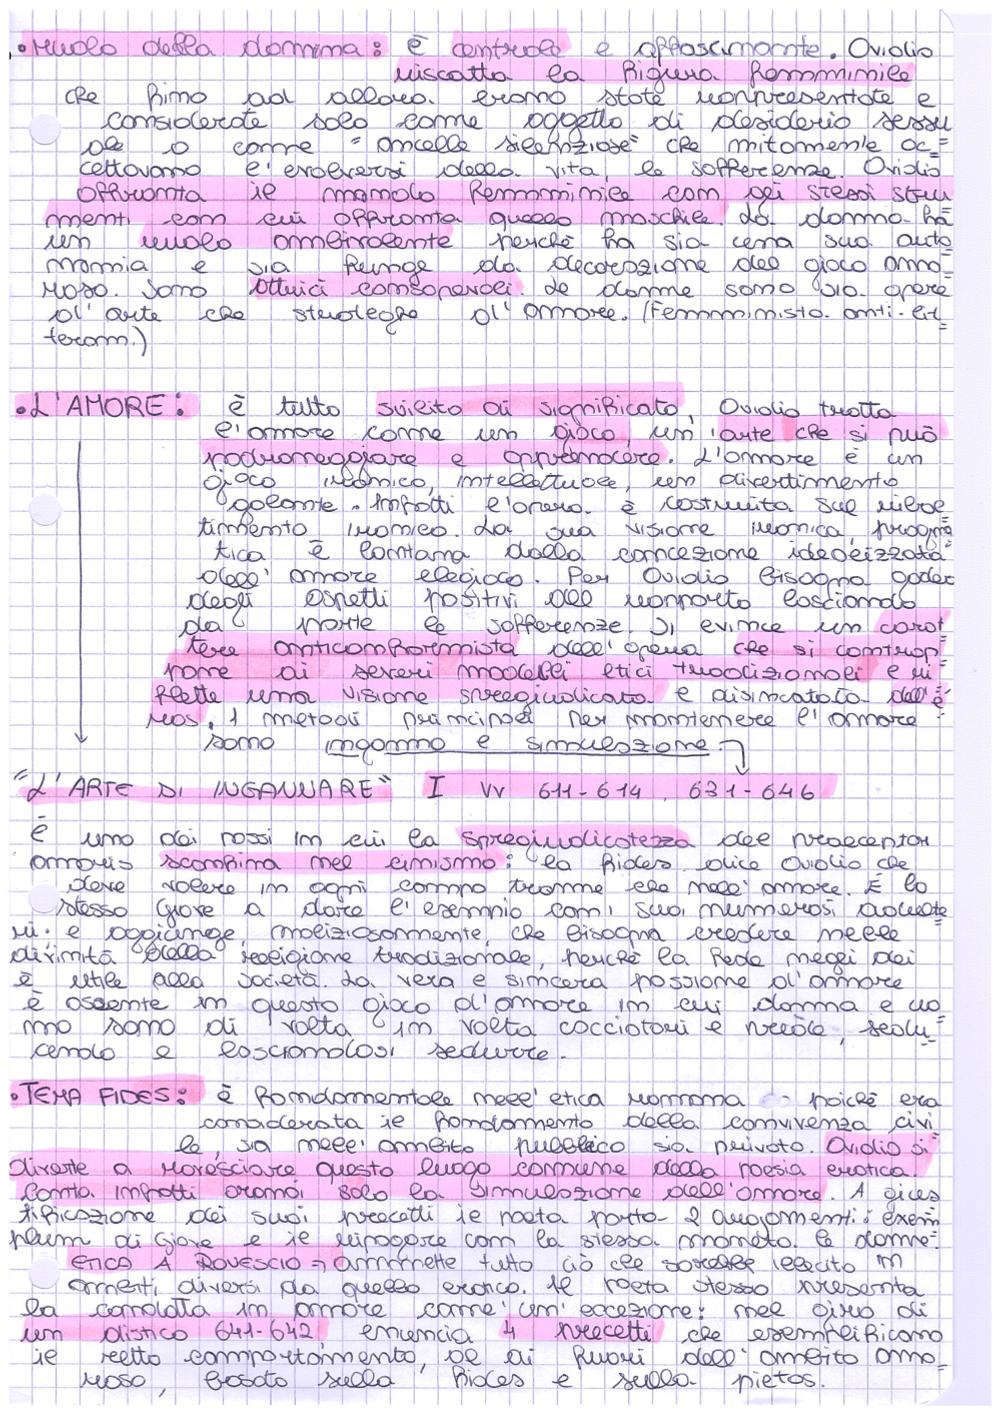 • Ruolo della donna: è centrale e affascinante. Ovidio
riscatta la figura femminile
che fino ad allora erano state rappresentate e
considerate solo come oggetto di desiderio sessu
ale o come "ancelle silenziose" che mitamente ac=
cettavano l'evolversi della vita, le sofferenze. Ovidio
affronta il mondo femminile con gli stessi stru
menti con cui affronta quello maschile. La donna ha
un ruolo ambivalente perché ha sia una sua auto
nomia e sia funge da decorazione del gioco amo=
roso. Sono attrici consapevoli. Le donne sono sia opere
d'arte che strateghe d'amore. (Femminista anti-lit
teram.)
• L'AMORE: è tutto svilito di significato, Ovidio tratta
l'amore come un gioco, un'arte che si può
padroneggiare e apprendere. L'amore è un
gioco ironico, intellettuale, un divertimento
galante. Infatti l'opera è costruita sul ribal
timento ironico. La sua visione ironica, pragma
tica è lontana dalla concezione idealizzata
dell'amore elegiaco. Per Ovidio bisogna goder
degli aspetti positivi del rapporto lasciando
da parte le sofferenze. Si evince un carat
tere anticonformista dell'opera che si contrap
pone ai severi modelli etici tradizionali e ri
flette una visione spregiudicata e disincatata dell'e=
ros. I metodi principali per mantenere l'amore
sono inganno e simulazione.
"L'ARTE DI INGANNARE" I vv 611-614, 631-646
è uno dei passi in cui la spregiudicatezza del praeceptor
amoris sconfina nel cinismo: la fides dice Ovidio che
deve valere in ogni campo tranne che nell'amore. È lo
stesso Giove a dare l'esempio con i suoi numerosi adulte
ri. e aggiunge, maliziosamente, che bisogna credere nelle
divinità della religione tradizionale, perché la fede negli dei
è utile alla società. La vera e sincera passione d'amore
è assente in questo gioco d'amore in cui donna e uo
mo sono di volta in volta cacciatori e prede, sedu=
cendo e lasciandosi sedurre.
• TEMA FIDES: è fondamentale nell'etica romana poiché era
considerata il fondamento della convivenza civi
le, sia nell'ambito pubblico sia privato. Ovidio si
diverte a rovesciare questo luogo comune della poesia erotica.
Conta infatti oramai solo la simulazione dell'amore. A gius
tificazione dei suoi precetti il poeta porta 2 argomenti: exem
plum di Giove e il ripagare con la stessa moneta le donne.
ETICA A ROVESCIO → ammette tutto ciò che sarebbe illecito in
ambiti diversi da quello erotico. Il poeta stesso presenta
la condotta in amore come un'eccezione: nel giro di
un distico 641-642 enuncia 4 precetti che esemplificano
il retto comportamento, al di fuori dell'ambito amo
roso, basato sulla fides e sulla pietas.